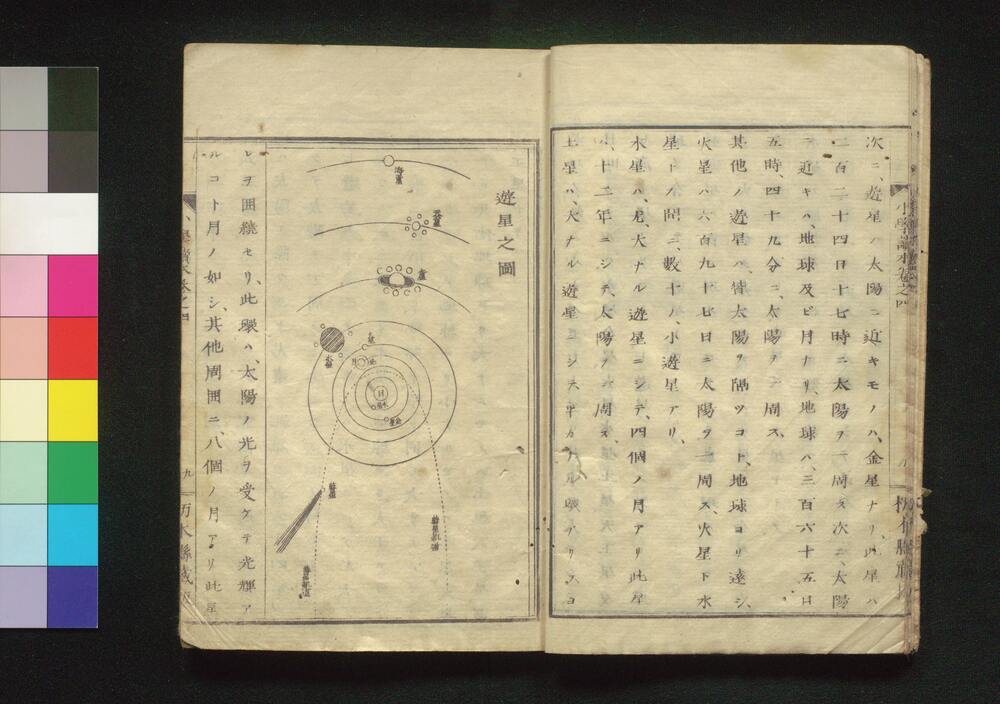 次ニ、遊星ノ太陽ニ近キモノハ、金星ナリ、此星ハ
二百二十四日十七時ニ太陽ヲ一周ス次ニ、太陽
ニ近キハ、地球及ビ月ナリ、地球ハ、三百六十五日
五時、四十九分ニ、太陽ヲ一周ス、
其他ノ遊星ハ、皆太陽ヲ隔ツコト、地球ヨリ遠シ、
火星ハ六百九十七日ニ太陽ヲ一周ス、火星ト木
星トノ間ニ、數十ノ小遊星アリ、
木星ハ、尤大ナル遊星ニシテ、四個ノ月アリ此星
ハ十二年ニシテ、太陽ヲ一周ス、
土星ハ、大ナル遊星ニシテ平カナル環アリテコ
小學讀本卷之四
遊星之圖
海王星
天王星
土星
木星
火星
月
地
日
水星
金星
彗星
彗星軌道
彗星軌道
レヲ囲繞セリ、此環ハ、太陽ノ光ヲ受ケテ光輝ア
ルコト月ノ如シ、其他周囲ニ、八個ノ月アリ此星
九